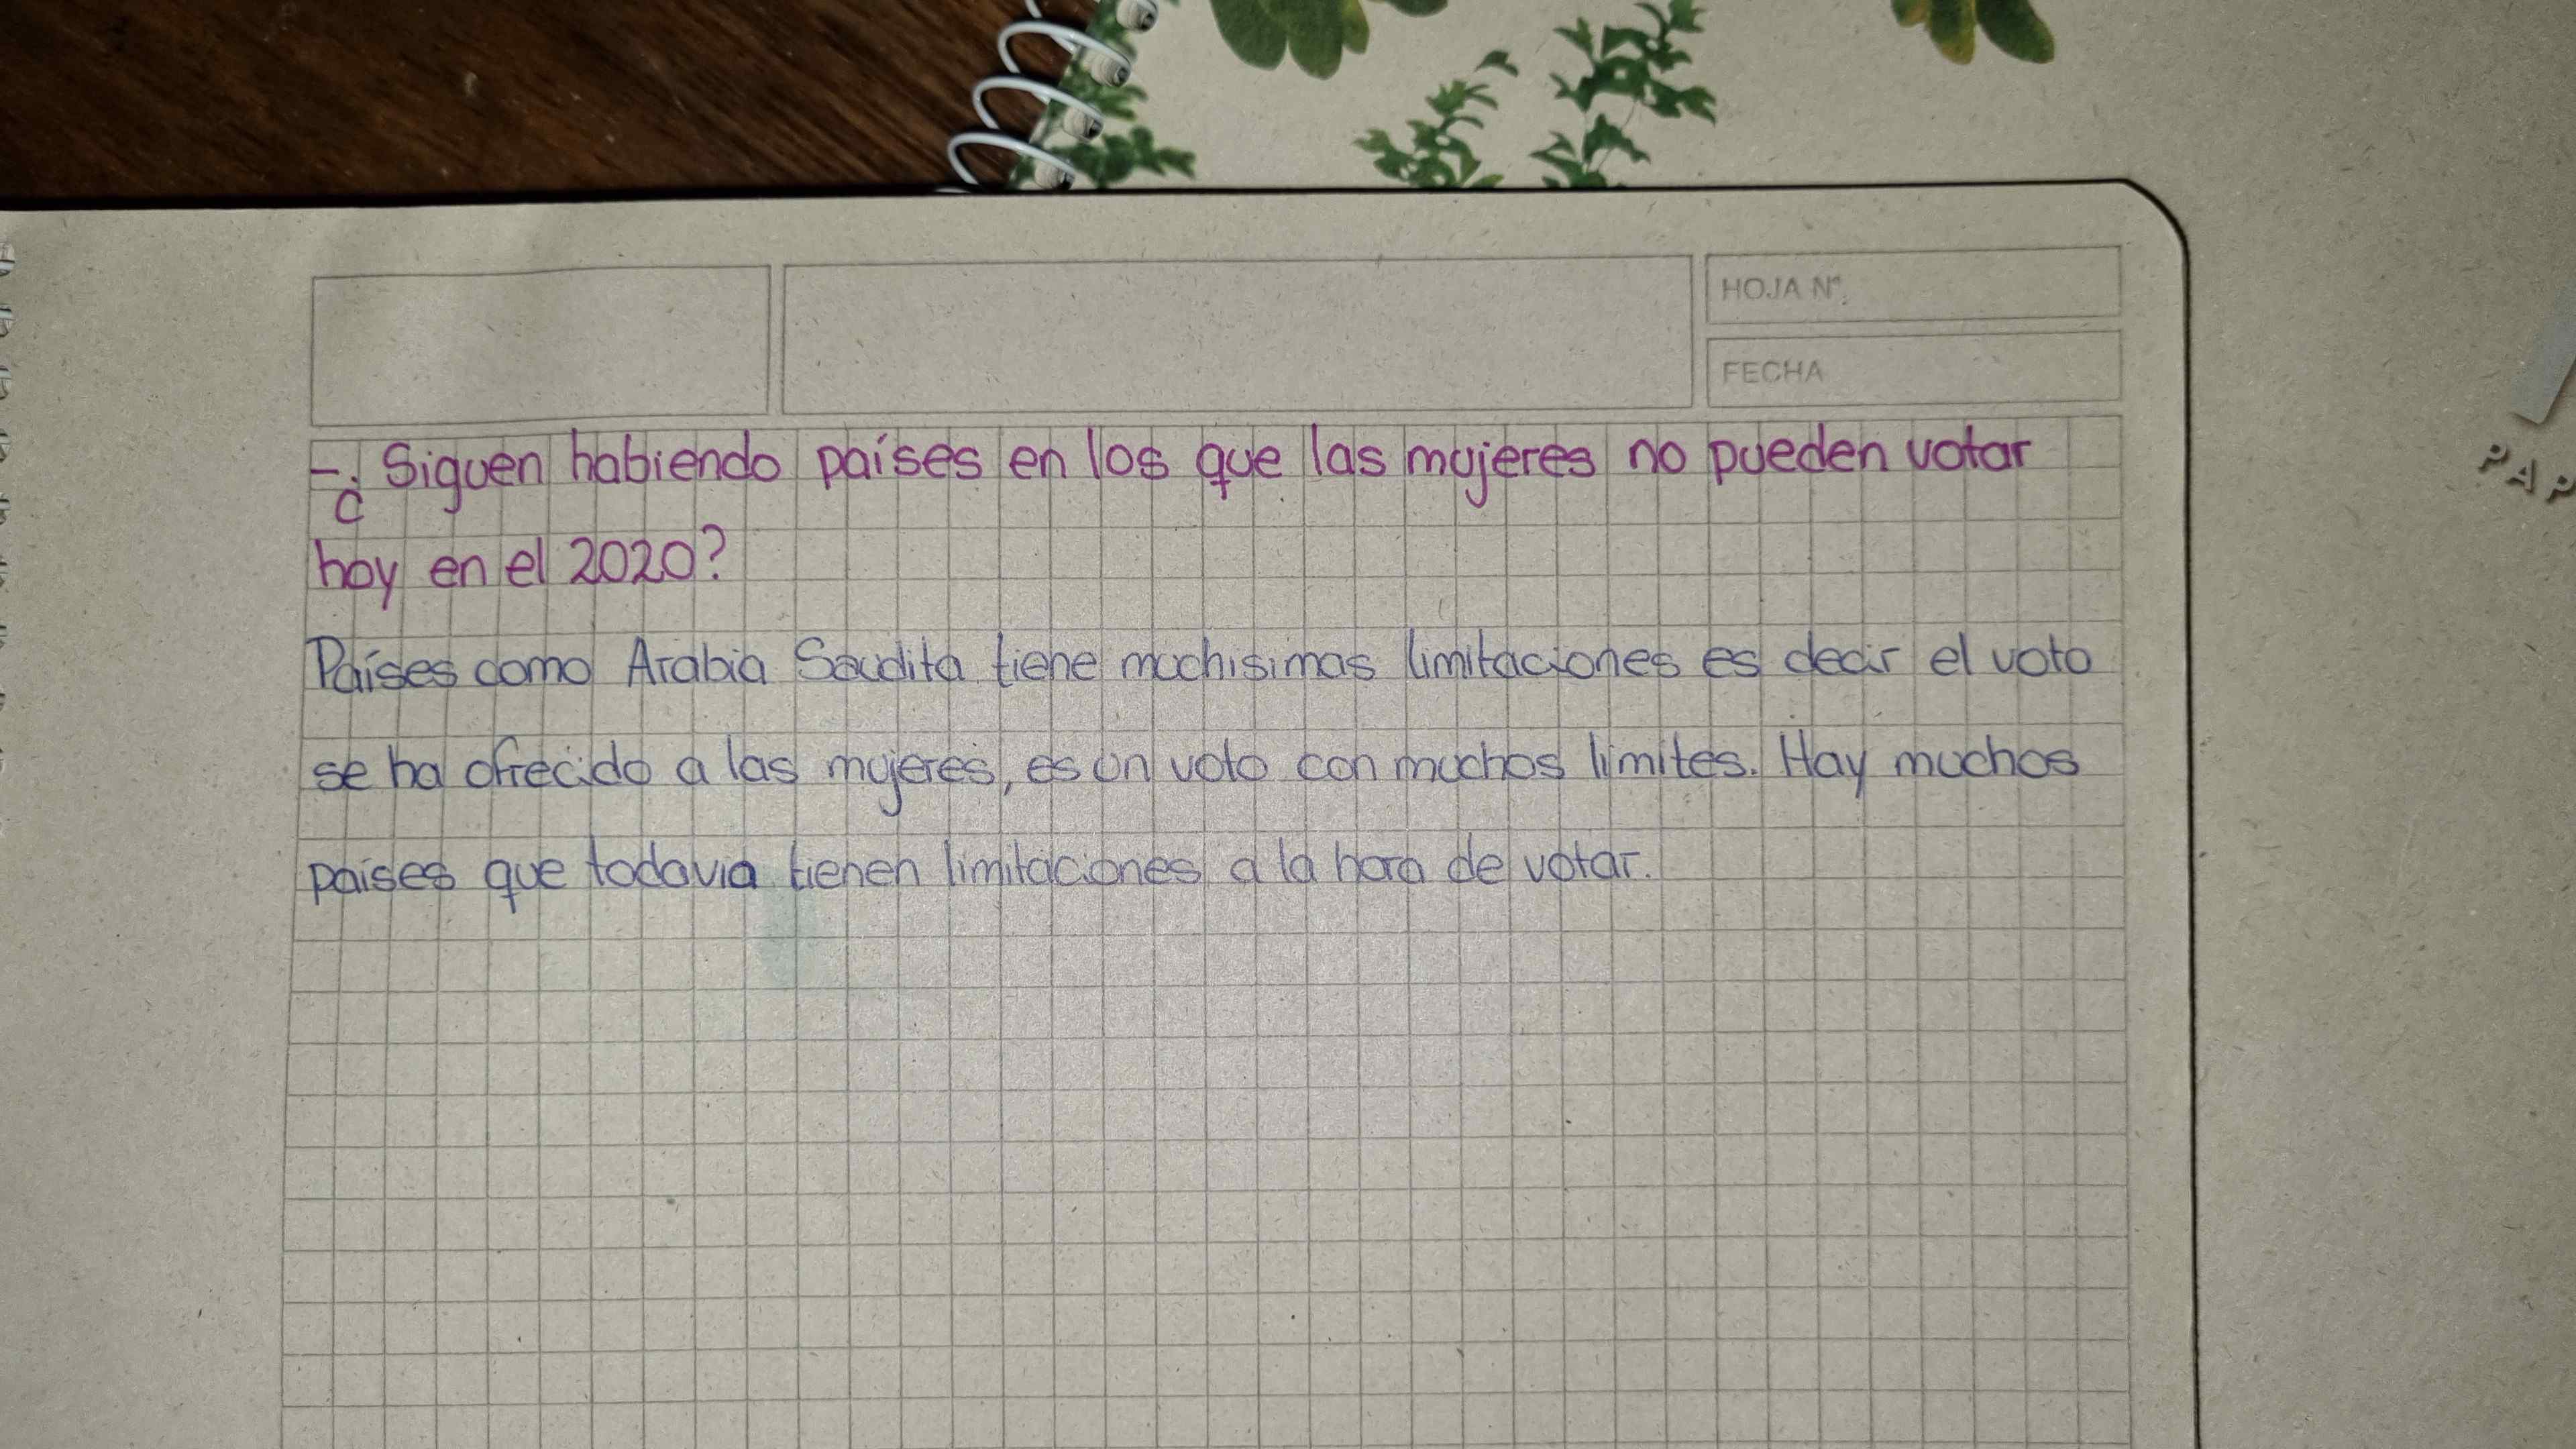 HOJA Nº.
FECHA
- ¿Siguen habiendo países en los que las mujeres no pueden votar
hoy en el 2020?
Países como Arabia Saudita tiene muchisimas limitaciones es decir el voto
se ha ofrecido a las mujeres, es un voto con muchos limites. Hay muchos
paises que todavia tienen limitaciones a la hora de votar.
PAP